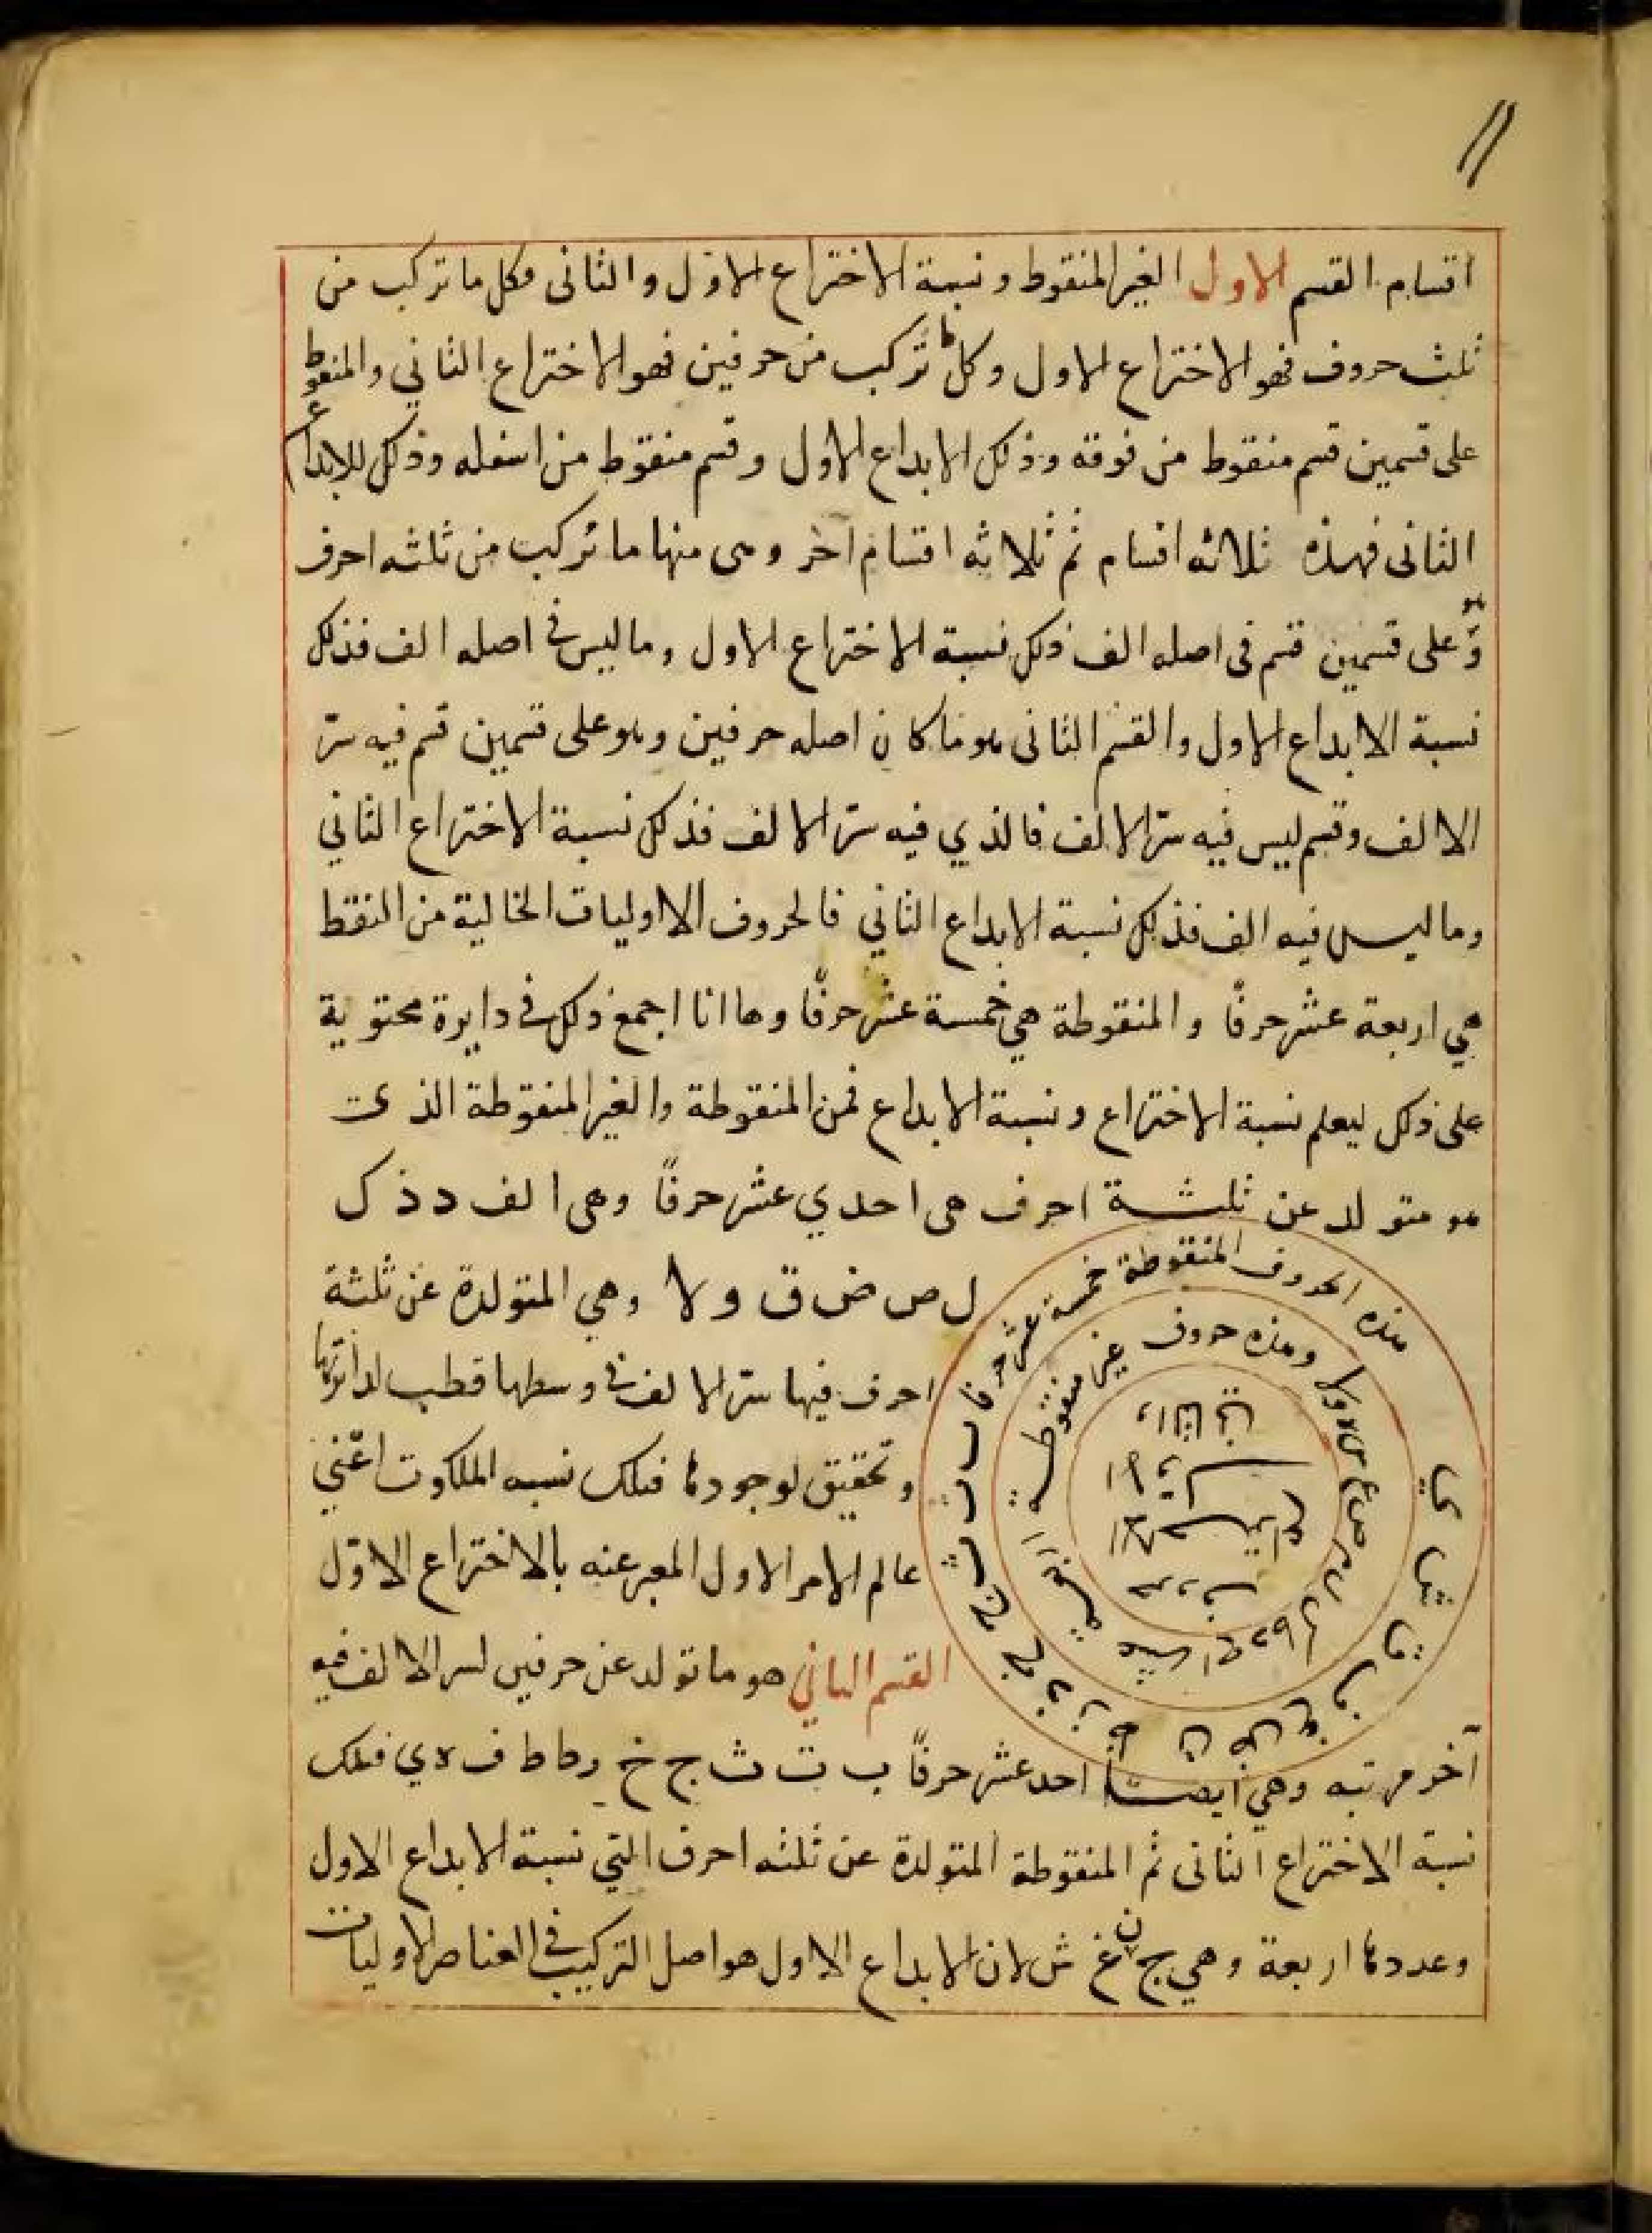 ١١
اقسام القسم الاول الغير المنقوط ونسبة الاختراع الاول والثانى وكل ما تركب من
ثلث حروف فهو الاختراع الاول وكل ما تركب من حرفين فهو الاختراع الثاني والمنقوط
على قسمين قسم منقوط من فوقه وذلك الابداع الاول وقسم منقوط من اسفله وذلك للابداع
الثانى فهذه ثلاثه اقسام ثم ثلاثه اقسام آخر وهى منها ما تركب من ثلثه احرف
وهو على قسمين قسم فى اصله الف ذلك نسبة الاختراع الاول وما ليس فى اصله الف فذلك
نسبة الابداع الاول والقسم الثانى هو ما كان اصله حرفين وهو على قسمين قسم فيه سرّ
الالف وقسم ليس فيه سرّ الالف فالذي فيه سرّ الالف فذلك نسبة الاختراع الثاني
وما ليس فيه الف فذلك نسبة الابداع الثاني فالحروف الاوليات الخالية من النقط
هي اربعة عشر حرفًا والمنقوطة هي خمسة عشر حرفًا وها انا اجمع ذلك فى دايرة محتوية
على ذلك ليعلم نسبة الاختراع ونسبة الابداع فمن المنقوطة والغير المنقوطة الذى
هو متولد عن ثلثة احرف هى احدي عشر حرفًا وهى الف د ذ ك
ل ص ض ق و لا وهي المتولدة عن ثلثة
احرف فيها سرّ الالف فى وسطها قطب لدائرتها
وتحقيق لوجودها فتلك نسبه الملكوت اعني
عالم الامر الاول المعبر عنه بالاختراع الاوّل
القسم الثاني هو ما تولد عن حرفين لسر الالف فيه
آخر مرتبه وهي ايضًا احد عشر حرفًا ب ت ث ج خ ر ط ظ ف ه ي فتلك
نسبة الاختراع الثانى ثم المنقوطة المتولدة عن ثلثه احرف التي نسبة الابداع الاول
وعددها اربعة وهي ج ن غ ش لان الابداع الاول هو اصل التركيب فى العناصر الاوليات
هذه الحروف المنقوطة خمسة عشر حرفا ب ت ث ج خ
وهذه حروف غير منقوطة